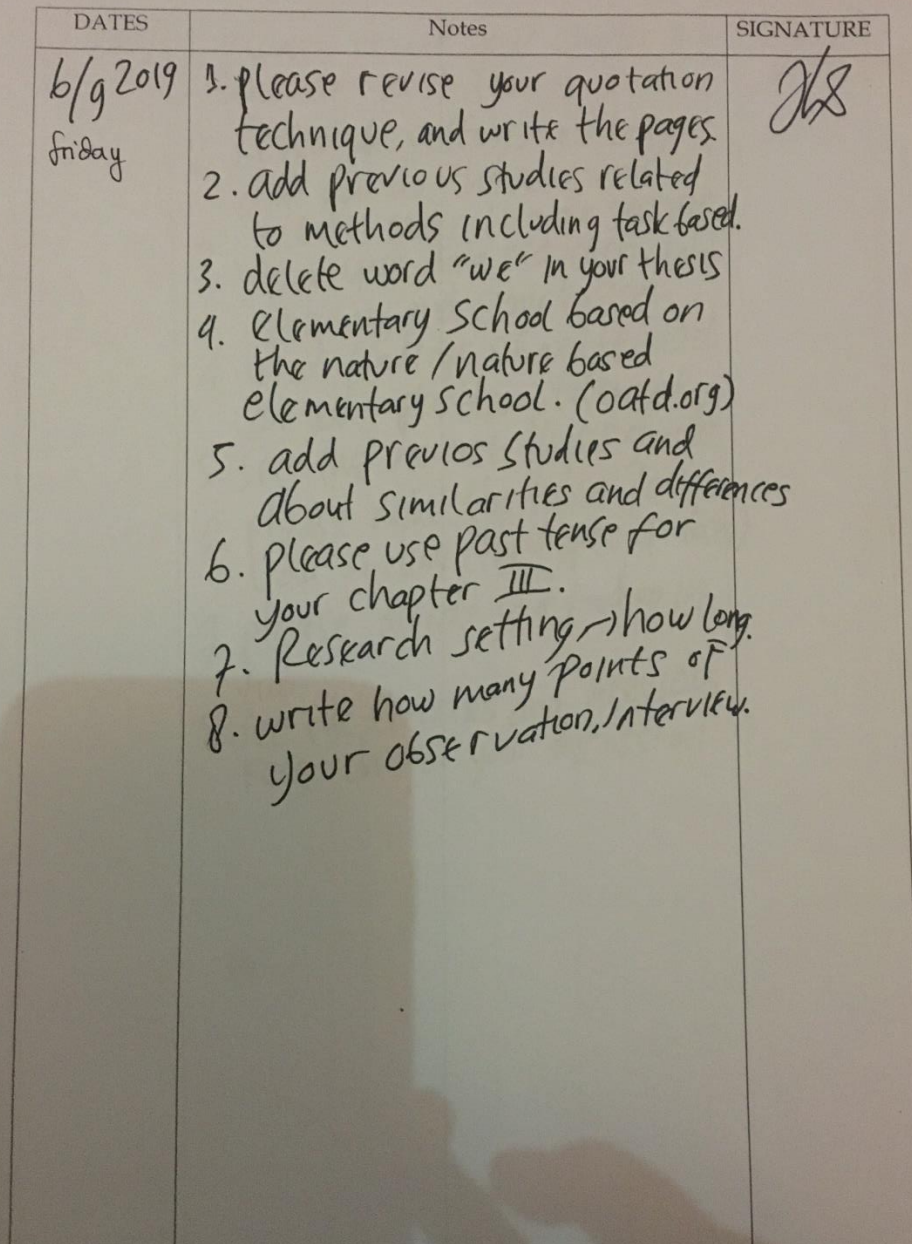 DATES Notes SIGNATURE
6/9 2019
friday
1. please revise your quotation
technique, and write the pages.
2. add previous studies related
to methods including task based.
3. delete word "we" in your thesis
4. elementary School based on
the nature / nature based
elementary school. (oatd.org)
5. add previos studies and
about similarities and differences
6. please use past tense for
your chapter III.
7. Research setting → how long.
8. write how many points of
your observation, interview.